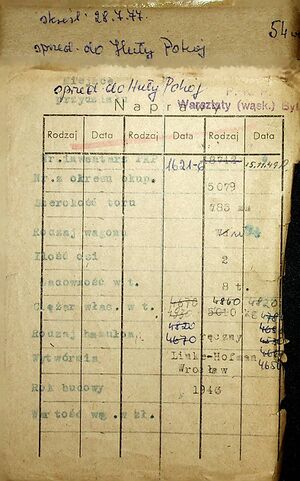 skreśl. 28.7.77.
sprzed. do Huty Pokój
54
Miejsce
sprzed. do Huty Pokój
Naprawy
Warsztaty (wąsk.) By
Rodzaj Data Rodzaj Data Rodzaj Data
Nr. inwentarz PKP 1621-6
Nr. z okresu okup. 5079
Szerokość toru 785 mm
Rodzaj wagonu
Ilość osi 2
Ładowność w t. 8 t.
Ciężar włas. w t. 4670 4860 4820
4930 5010
4820
Rodzaj hamulca 4670 ręczny
Wytwórnia Linke-Hofman
Wrocław 4650
Rok budowy 1943
Wartość wg. w zł.